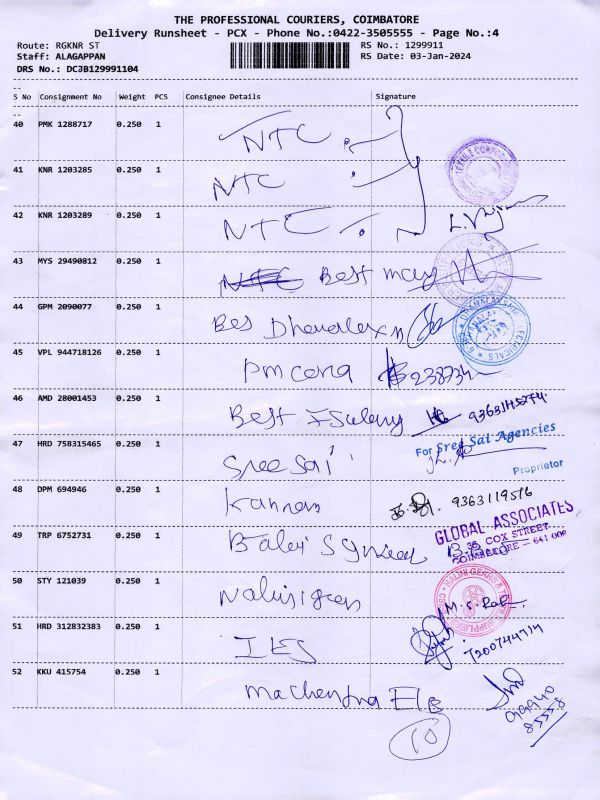 THE PROFESSIONAL COURIERS, COIMBATORE
Delivery Runsheet - PCX - Phone No.:0422-3505555 - Page No.:4
Route: RGKNR ST RS No.: 1299911
Staff: ALAGAPPAN RS Date: 03-Jan-2024
DRS No.: DCJB129991104
S No Consignment No Weight PCS Consignee Details Signature
40 PMK 1288717 0.250 1 NTC
41 KNR 1203285 0.250 1 NTC
42 KNR 1203289 0.250 1 NTC
43 MYS 29490812 0.250 1 NTC Best
44 GPM 2090077 0.250 1
45 VPL 944718126 0.250 1 238734
46 AMD 28001453 0.250 1 Best
For Sree Sai Agencies
47 HRD 758315465 0.250 1 Sree Sai
Proprietor
48 DPM 694946 0.250 1 Kannan 9363119516
GLOBAL ASSOCIATES
49 TRP 6752731 0.250 1
COX STREET
COIMBATORE - 641 009
50 STY 121039 0.250 1
51 HRD 312832383 0.250 1 IES
7200744714
52 KKU 415754 0.250 1
99940
85558
10